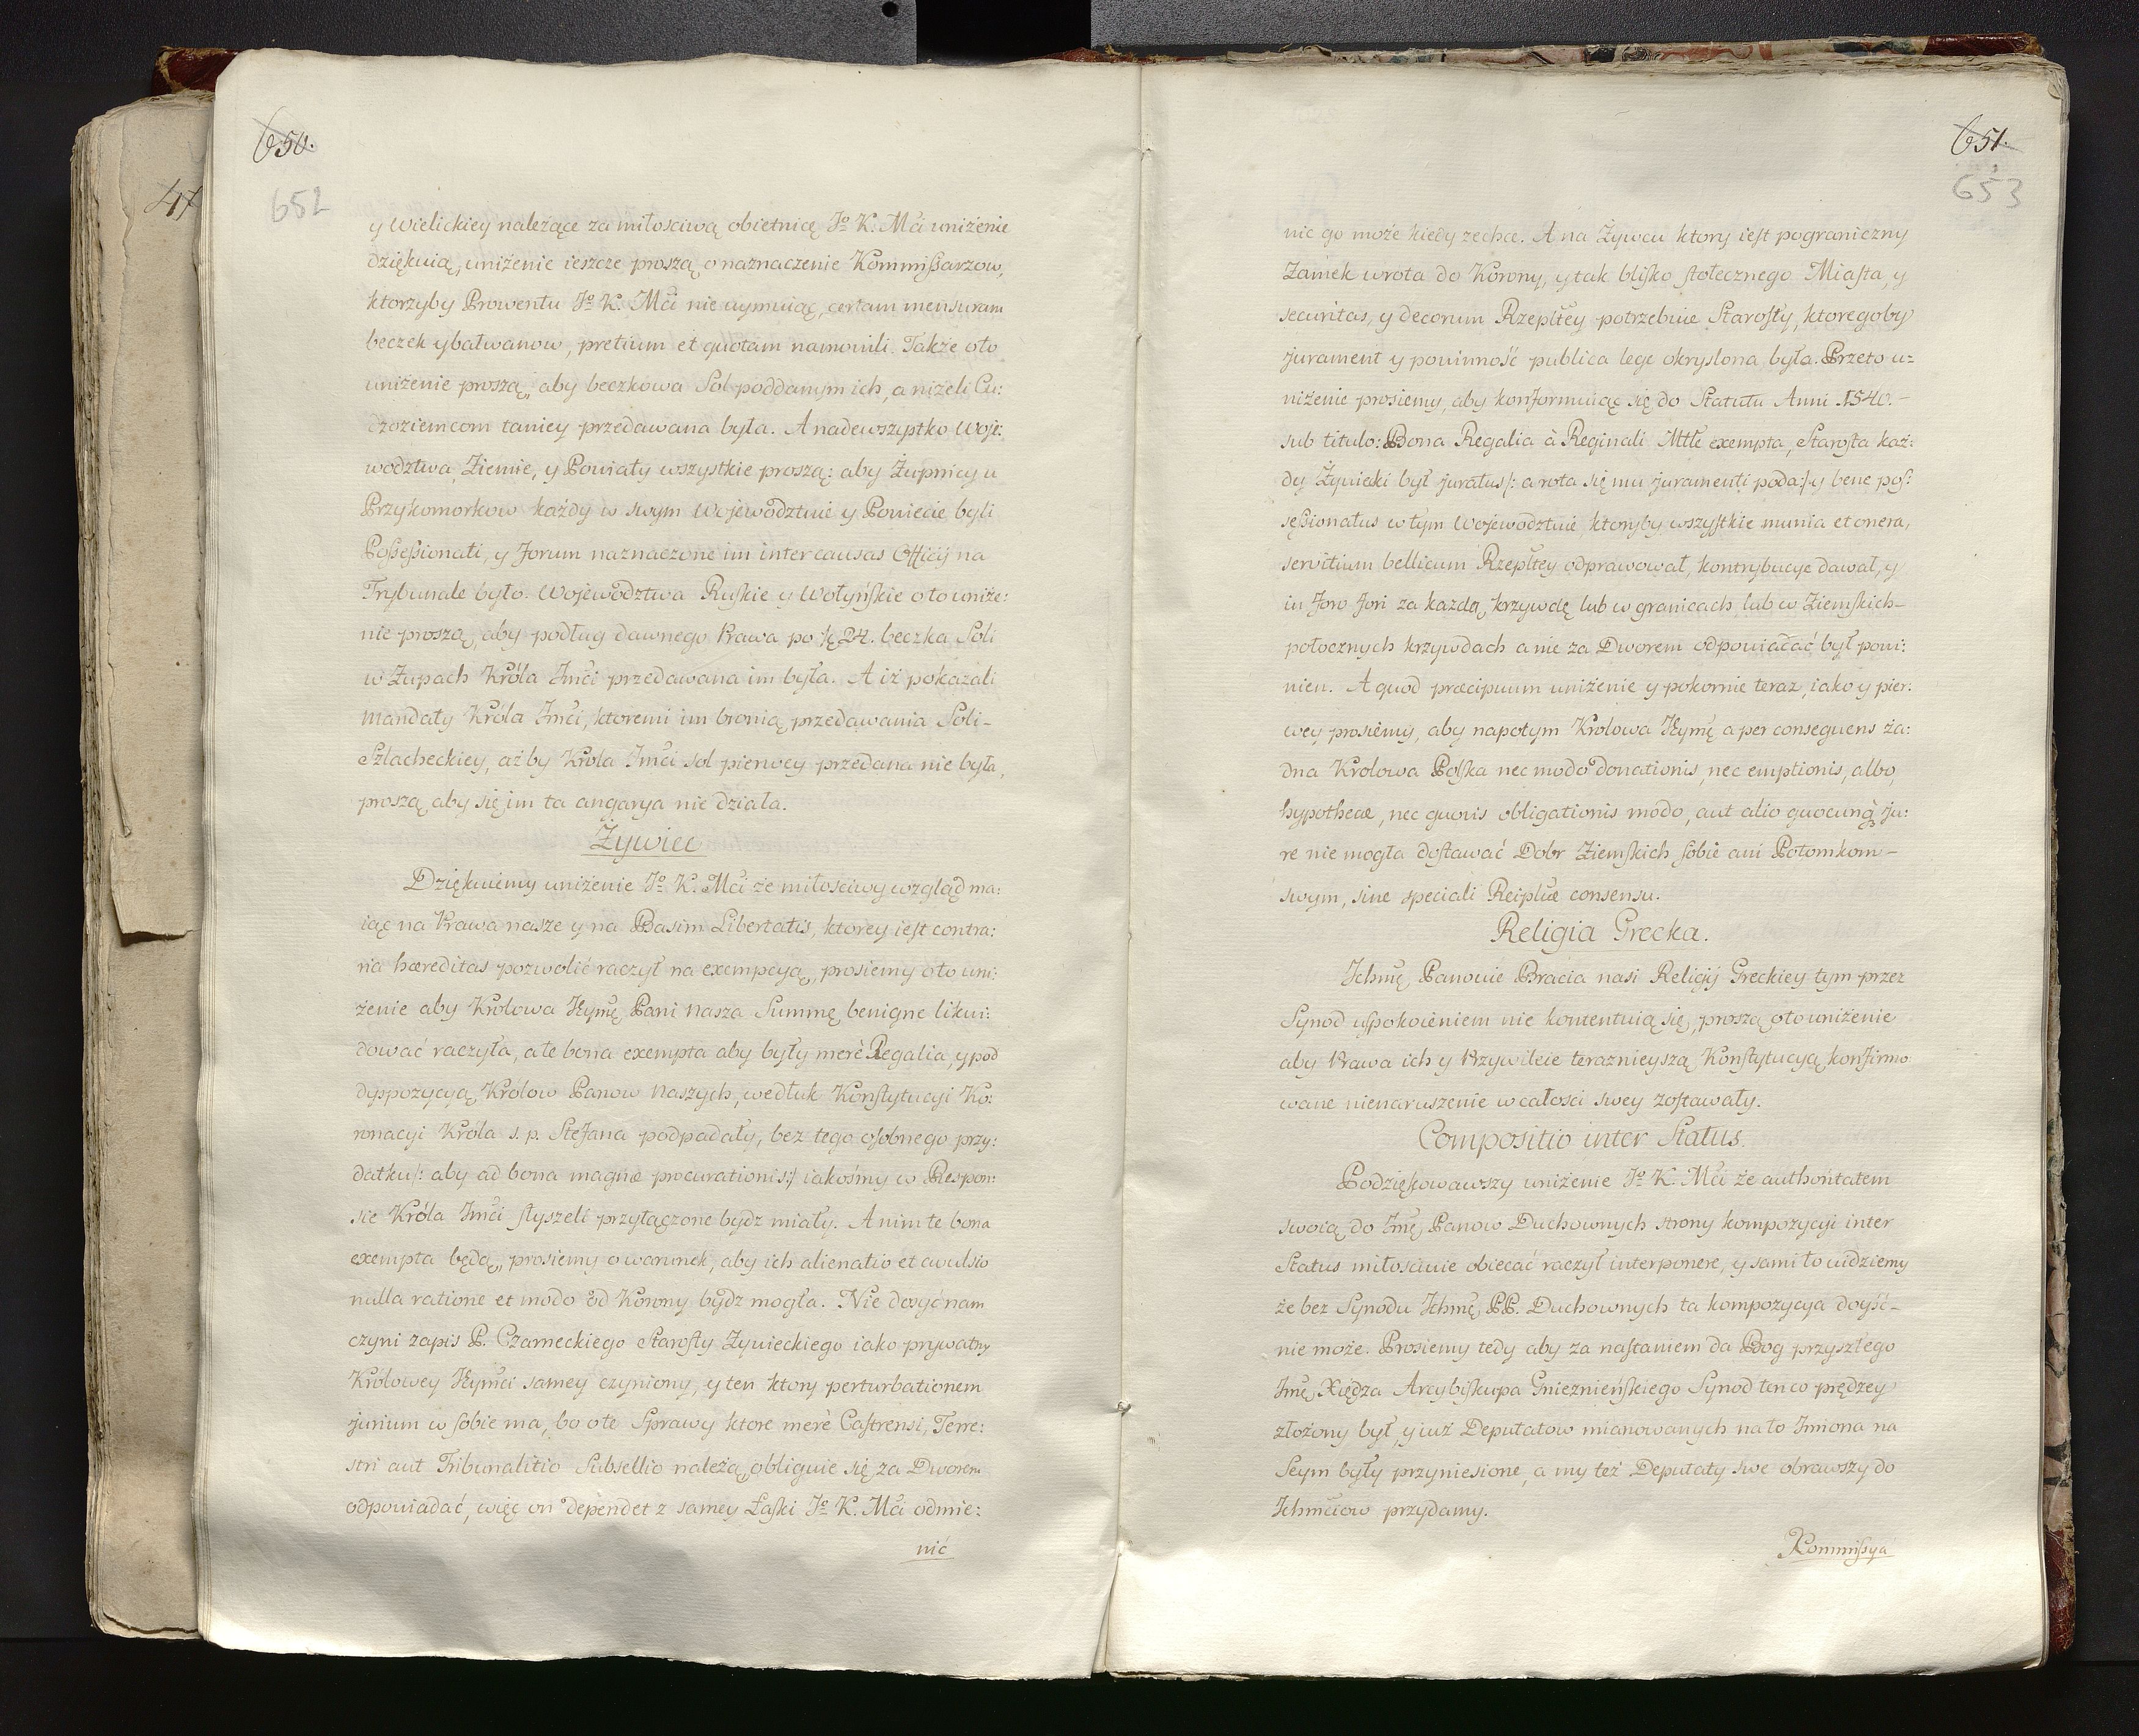 650.
652
y Wielickiey należące za miłosciwą obietnicę Jº K. Mći uniżenie
dziękuią, uniżenie ieszcze proszą o naznaczenie Kommissarzow,
ktorzyby Prowentu Jº K. Mći nie uymuiąc, certam mensuram
beczek y bałwanow, pretium et quotam namowili. Także o to
uniżenie proszą, aby beczkowa Sol poddanym ich, a niżeli Cu:
dzoziemcom taniey przedawana była. A nadewszystko Woje:
wodztwa, Ziemie, y Powiaty wszystkie proszą: aby Żupnicy u
Przykomorkow każdy w swym Wojewodztwie y Powiecie byli
Possessionati, y Forum naznaczone im inter causas Officij na
Trybunale było. Wojewodztwa Ruskie y Wołyńskie o to uniże:
nie proszą, aby podług dawnego Prawa po 24. beczka Soli
w Żupach Króla Jmći przedawana im była. A iż pokazali
Mandaty Króla Jmći, ktoremi im bronią przedawania Soli-
Szlacheckiey, aż by Króla Jmći sol pierwey przedana nie była,
proszą, aby się im ta angarya nie działa.
Żywiec
Dziękuiemy uniżenie Jº K. Mći że miłosciwy wzgląd ma:
iąc na Prawa nasze y na Basim Libertatis, ktorey iest contra:
ria hæreditas pozwolić raczył na exempcyą, prosiemy o to uni:
żenie aby Królowa Jeymę Pani Nasza Summę benigne likwi:
dować raczyła, a te bona exempta aby były merè Regalia, y pod
dyspozycyą Królow Panow Naszych, wedłuk Konstytucyi Ko:
ronacyi Króla s. p. Stefana podpadały, bez tego osobnego przy:
datku/: aby ad bona magnæ procurationis:/ iakośmy w Respon:
sie Króla Jmći słyszeli przyłączone bydz miały. A nim te bona
exempta będą, prosiemy o warunek, aby ich alienatio et avulsio
nulla ratione et modo od Korony bydz mogła. Nie dosyć nam
czyni zapis P. Czarneckiego Starosty Zywieckiego iako prywatny
Królowey Jeymći samey czyniony, y ten ktory perturbationem
jurium w sobie ma, bo o te Sprawy ktore merè Castrensi, Terre:
stri aut Tribunalitio Subsellio należą, obliguie się za Dworem
odpowiadać, więc on dependet z samey Łaski Jº K. Mći odmie:
nić
651.
653
nic go może kiedy zechce. A na Żywcu ktory iest pograniczny
Zamek wrota do Korony, y tak blisko stołecznego Miasta, y
securitas, y decorum Rzepltey potrzebuie Starosty, ktoregoby
jurament y powinność publica lege okryslona była. Przeto u=
niżenie prosiemy, aby konformuiąc się do Statutu Anni 1540.-
sub titulo: Bona Regalia à Reginali Mtte exempta, Starosta każ:
dy Żywiecki był juratus/: a rota się mu juramenti poda:/ y bene pos:
sessionatus w tym Wojewodztwie, ktoryby wszystkie munia et onera,
servitium bellicum Rzepltey odprawował, kontrybucye dawał, y
in foro fori za każdą krzywdę lub w granicach, lub w Ziemskich-
potocznych krzywdach a nie za Dworem odpowiadać był powi:
nien. A quod præcipuum uniżenie y pokornie teraz, iako y pier:
wey prosiemy, aby napotym Krolowa Jeymę a per consequens ża:
dna Krolowa Polska nec modo donationis, nec emptionis, albo
hypothecæ, nec quovis obligationis modo, aut alio quocunq ju:
re nie mogła dostawać Dobr Ziemskich sobie ani Potomkom-
swym, sine speciali Reiplicæ consensu.
Religia Grecka.
Ichmę Panowie Bracia nasi Religij Greckiey tym przez
Synod uspokoieniem nie kontentuią się, proszą o to uniżenie
aby Prawa ich y Przywileie teraznieyszą Konstytucyą konfirmo
wane nienaruszenie w całosci swey zostawały.
Compositio inter Status.
Podziękowawszy uniżenie Jº K. Mći że authoritatem
swoią do Jmę Panow Duchownych strony kompozycyi inter
Status miłosciwie obiecać raczył interponere, y sami to widziemy
że bez Synodu Ichmę PP. Duchownych ta kompozycya doyść-
nie może. Prosiemy tedy aby za nastaniem da Bog przyszłego
Jmę Xiędza Arcybiskupa Gnieznieńskiego Synod ten co prędzey
złożony był, y iuż Deputatow mianowanych na to Imiona na
Seym były przyniesione, a my też Deputaty swe obrawszy do
Ichmciow przydamy.
Kommissya